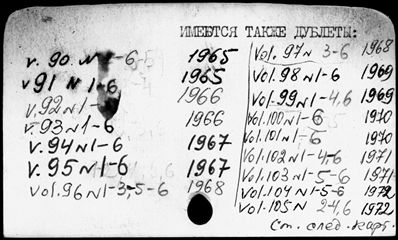 ИМЕЕТСЯ ТАКЖЕ ДУБЛЕТЫ:
v. 90 N 1-6 1965
v 91 N 1-6 1965
v. 92 N 1- 1966
v. 93 N 1-6 1966
v. 94 N 1-6 1967
v. 95 N 1-6 1967
vol. 96 N 1-3, 5-6 1968
Vol. 97 N 3-6 1968
Vol. 98 N 1-6 1969
Vol. 99 N 1-4, 6 1969
Vol. 100 N 1-6 1970
Vol. 101 N 1-6 1970
Vol. 102 N 1-4, 6 1971
Vol. 103 N 1-5-6 1971
Vol. 104 N 1-5-6 1972
Vol. 105 N 2-4, 6 1972
См. след. карт.